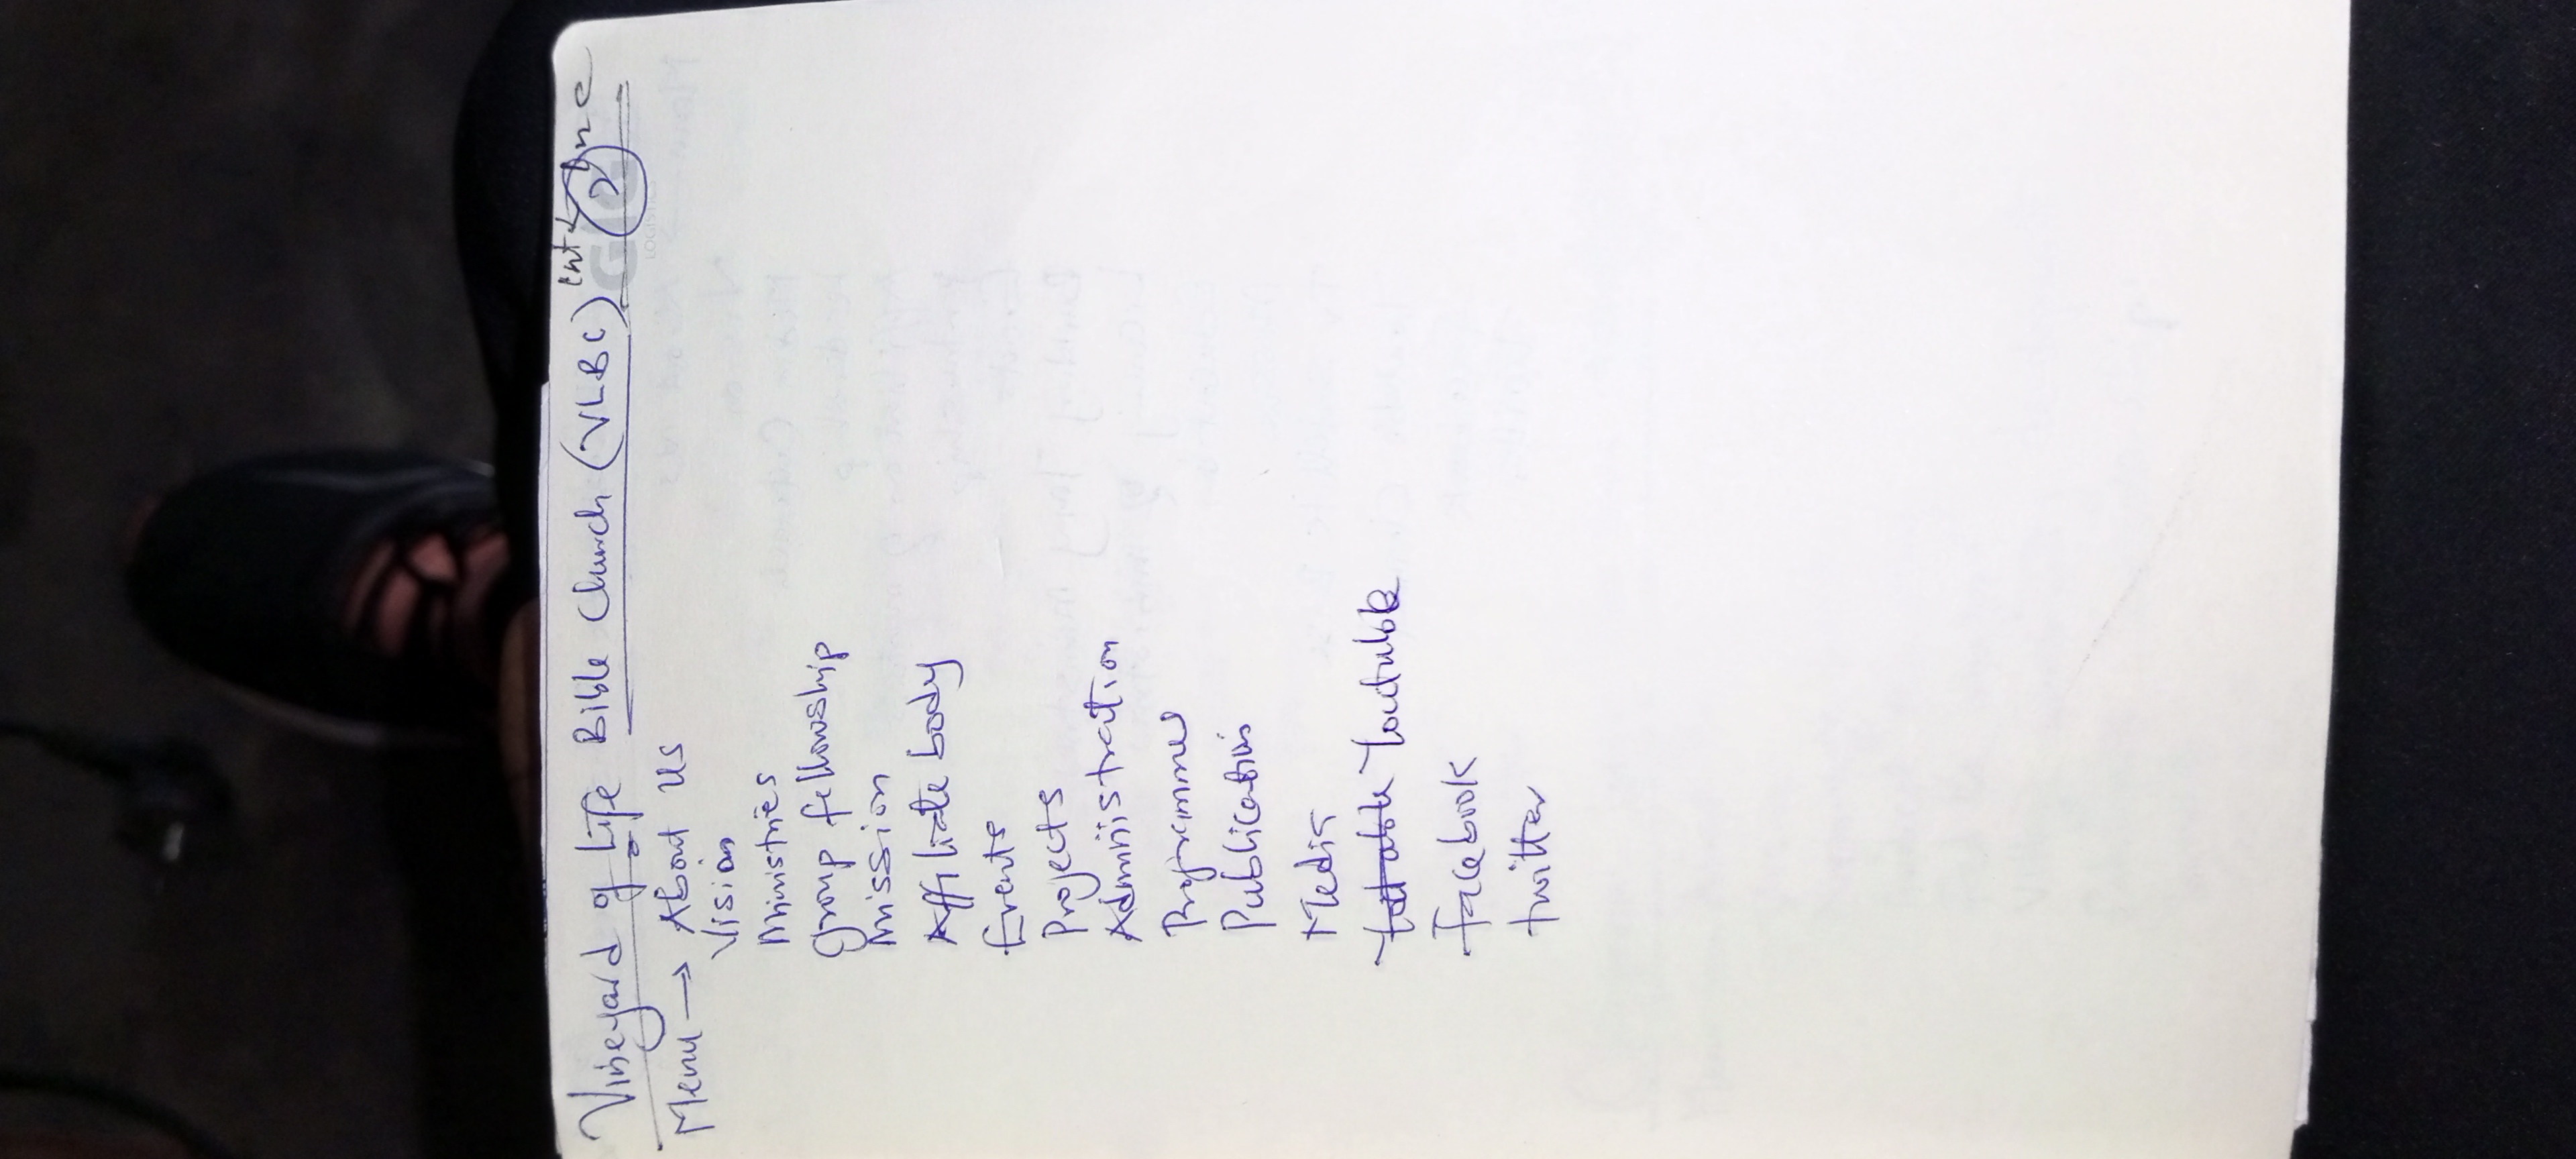 Vineyard of Life Bible Church (VLBC) int'l inc
2
GIG
LOGISTICS
Menu → About Us
Vision
Ministries
Group fellowship
Mission
Affiliate body
Events
Projects
Administration
Programmes
Publications
Media
Youtube
Facebook
twitter